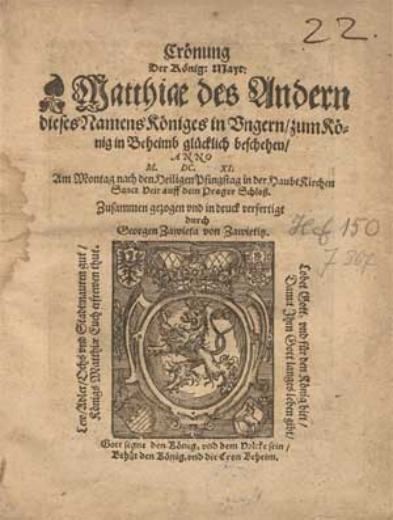 22.
Crönung
Der König: Mayt:
Matthiæ des Andern
dieses Namens Königes in Vngern/zum Kö-
nig in Beheimb glücklich beschehen/
ANNO
M. DC. XI.
Am Montag nach den Heiligen Pfingstag in der Haubt Kirchen
Sanct Veit auff dem Prager Schloß.
Zusammen gezogen vnd in druck verfertigt
durch
Georgen Zawieta von Zawietitz.
Hef 150
J 367
Lew/Adler/Ochs vnd Stadtmauren gut/
Königs Matthiæ Euch erfrewen thut.
Lobet Gott, vnd für den König bitt/
Damit Ihm Gott langes leben gibt/
Gott segne den König, vnd dem Volcke sein/
Behüt den König, vnd die Cron Beheim.